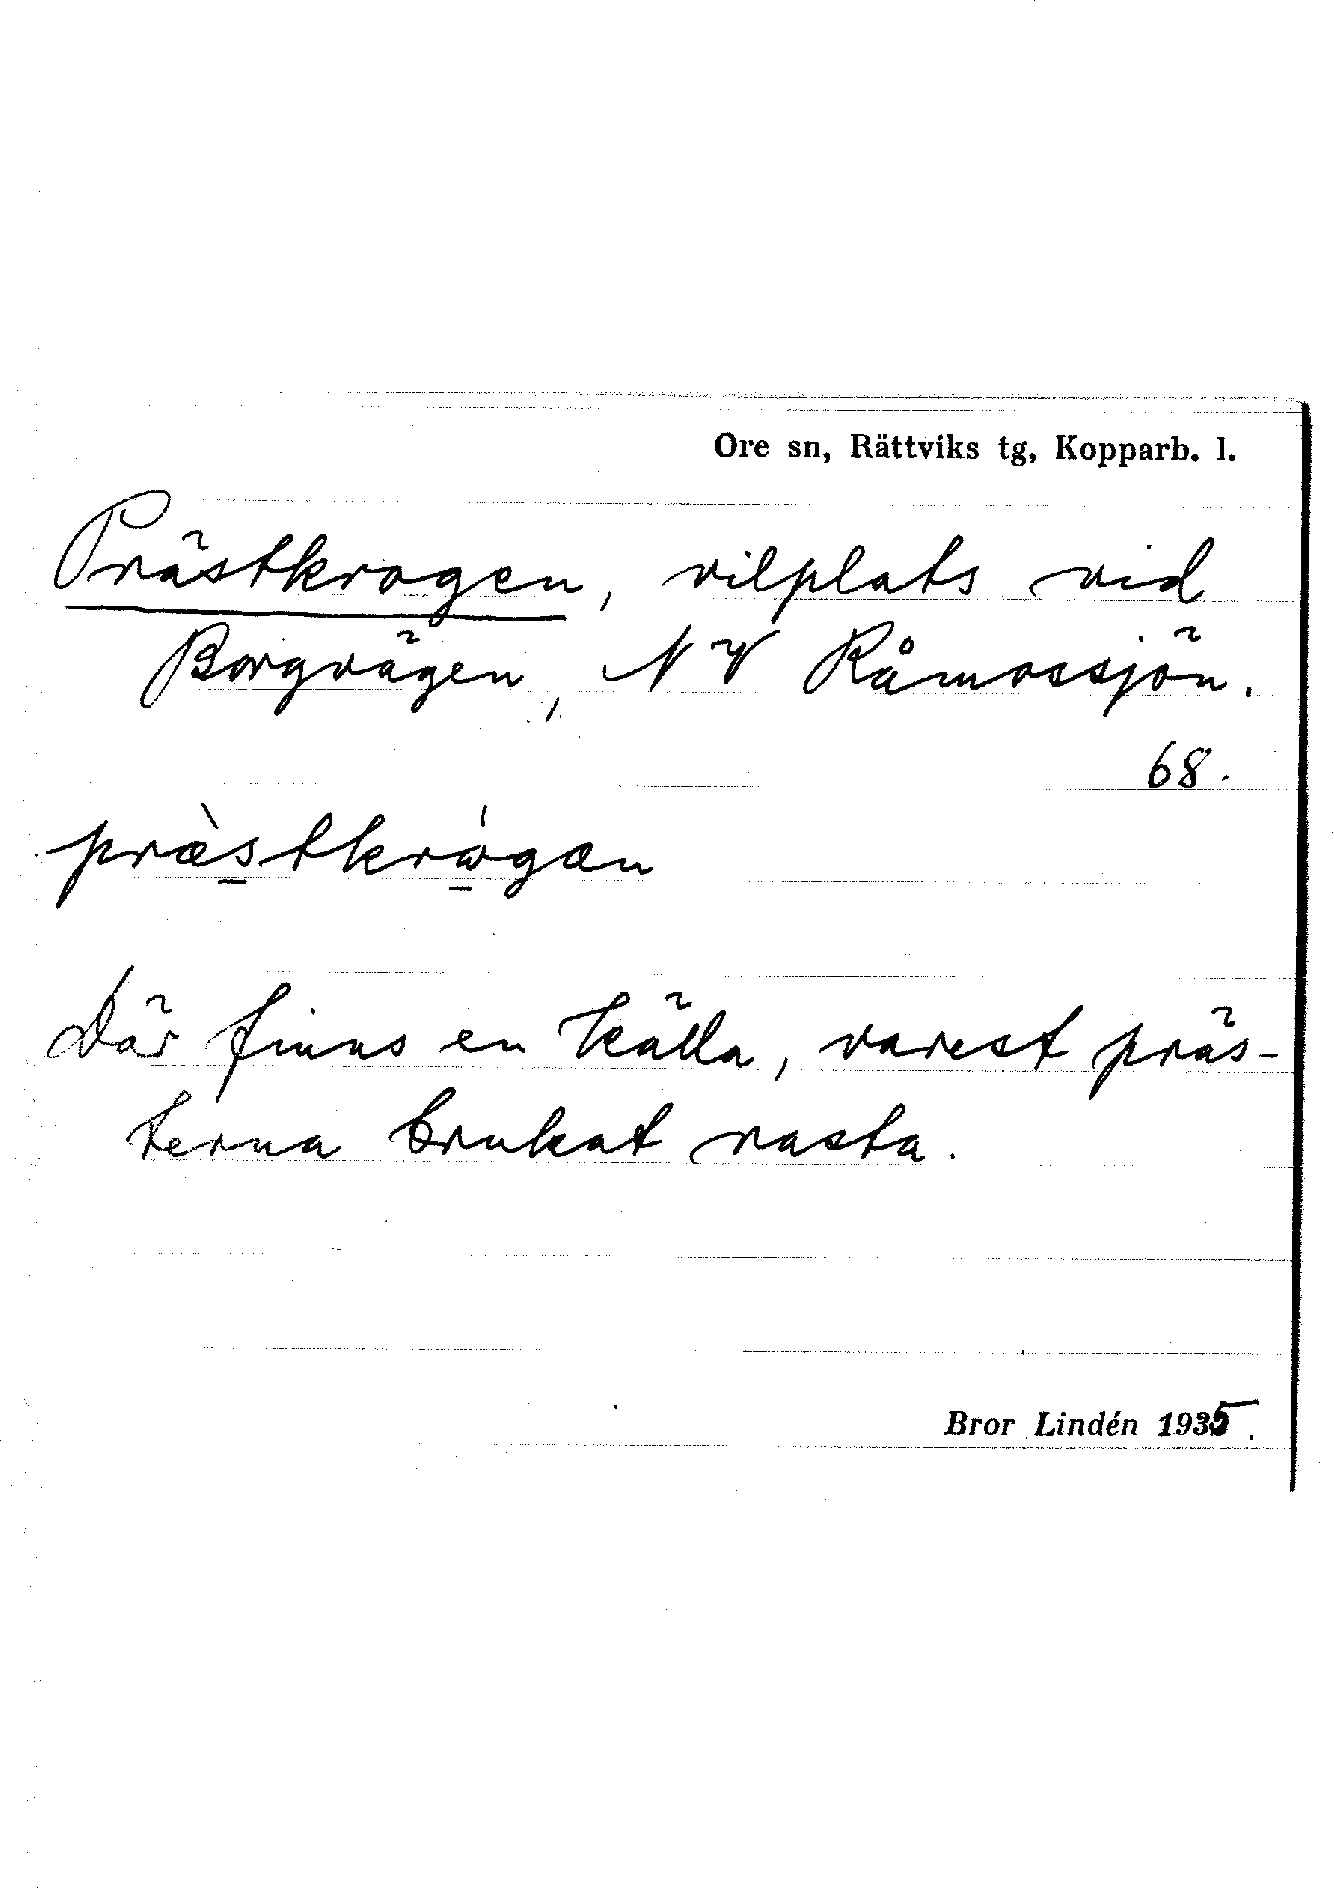 Ore sn, Rättviks tg, Kopparb. l.
Prästkrogen, vilplats vid
Borgvägen, NV Råmossjön.
68.
præ̀stkrώgæn
Där finns en källa, varest präs-
terna brukat rasta.
Bror Lindén 1935.